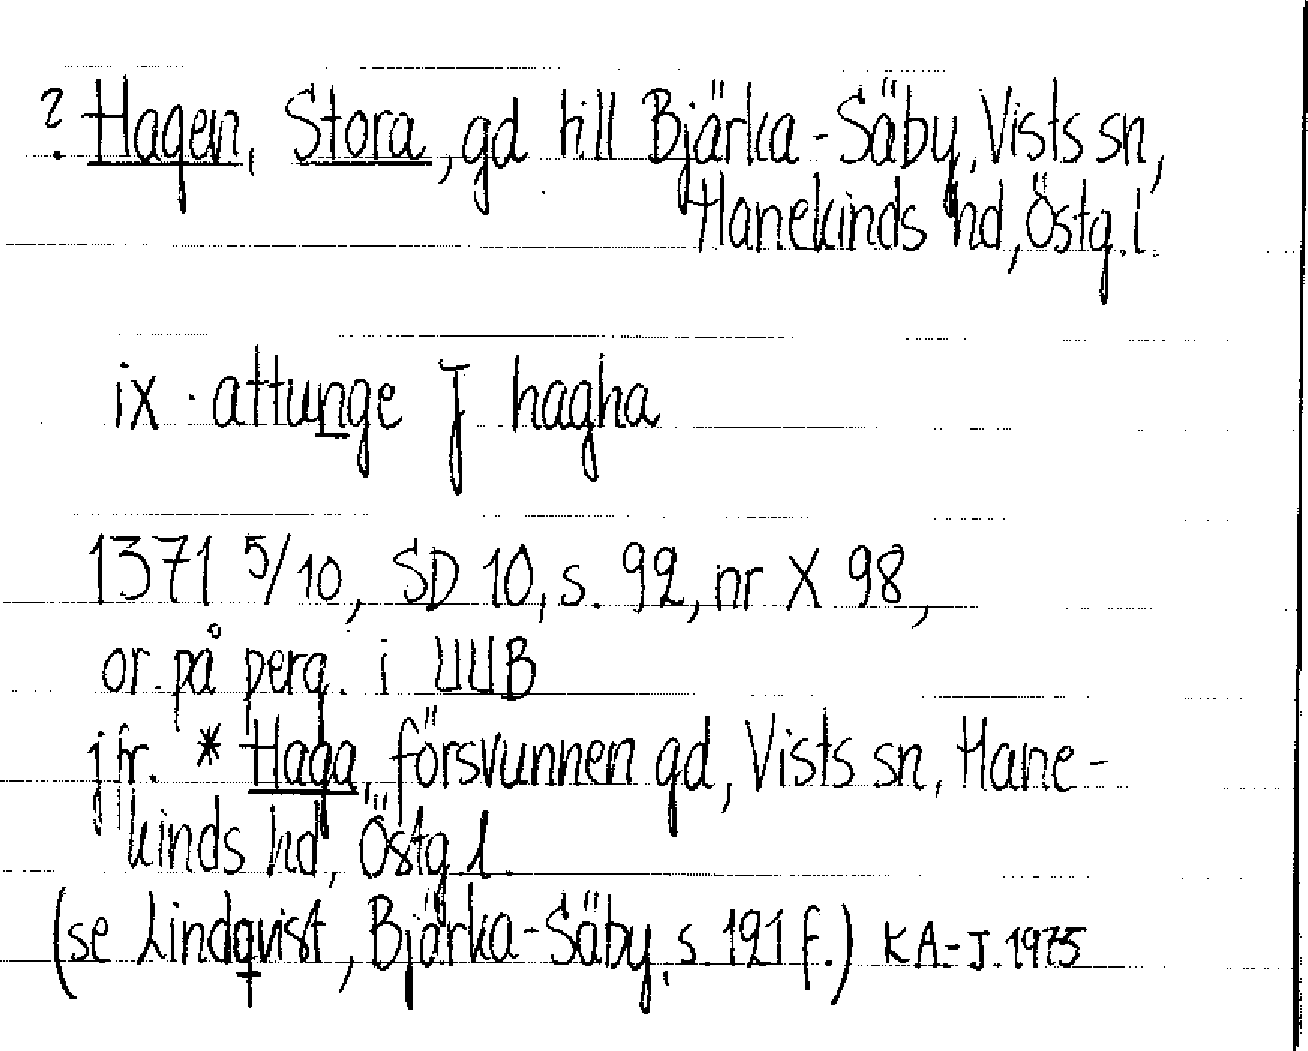 ? Hagen, Stora, gd till Bjärka-Säby, Vists sn,
Hanekinds hd, Östg. l.
ix · attunge J hagha
1371 5/10, SD 10, s. 92, nr X 98,
or. på perg. i UUB
jfr. * Haga, försvunnen gd, Vists sn, Hane-
kinds hd, Östg l.
(se Lindqvist, Bjärka-Säby, s. 191 f.) KA-J. 1975